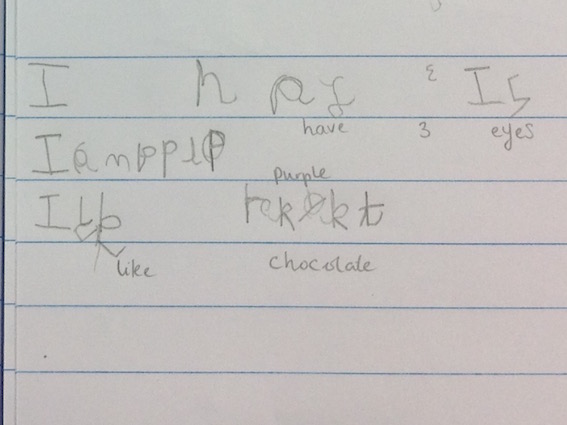 I h a y ع I s
have 3 eyes
I a n p p l p
purple
I L b t c k k t
like chocolate